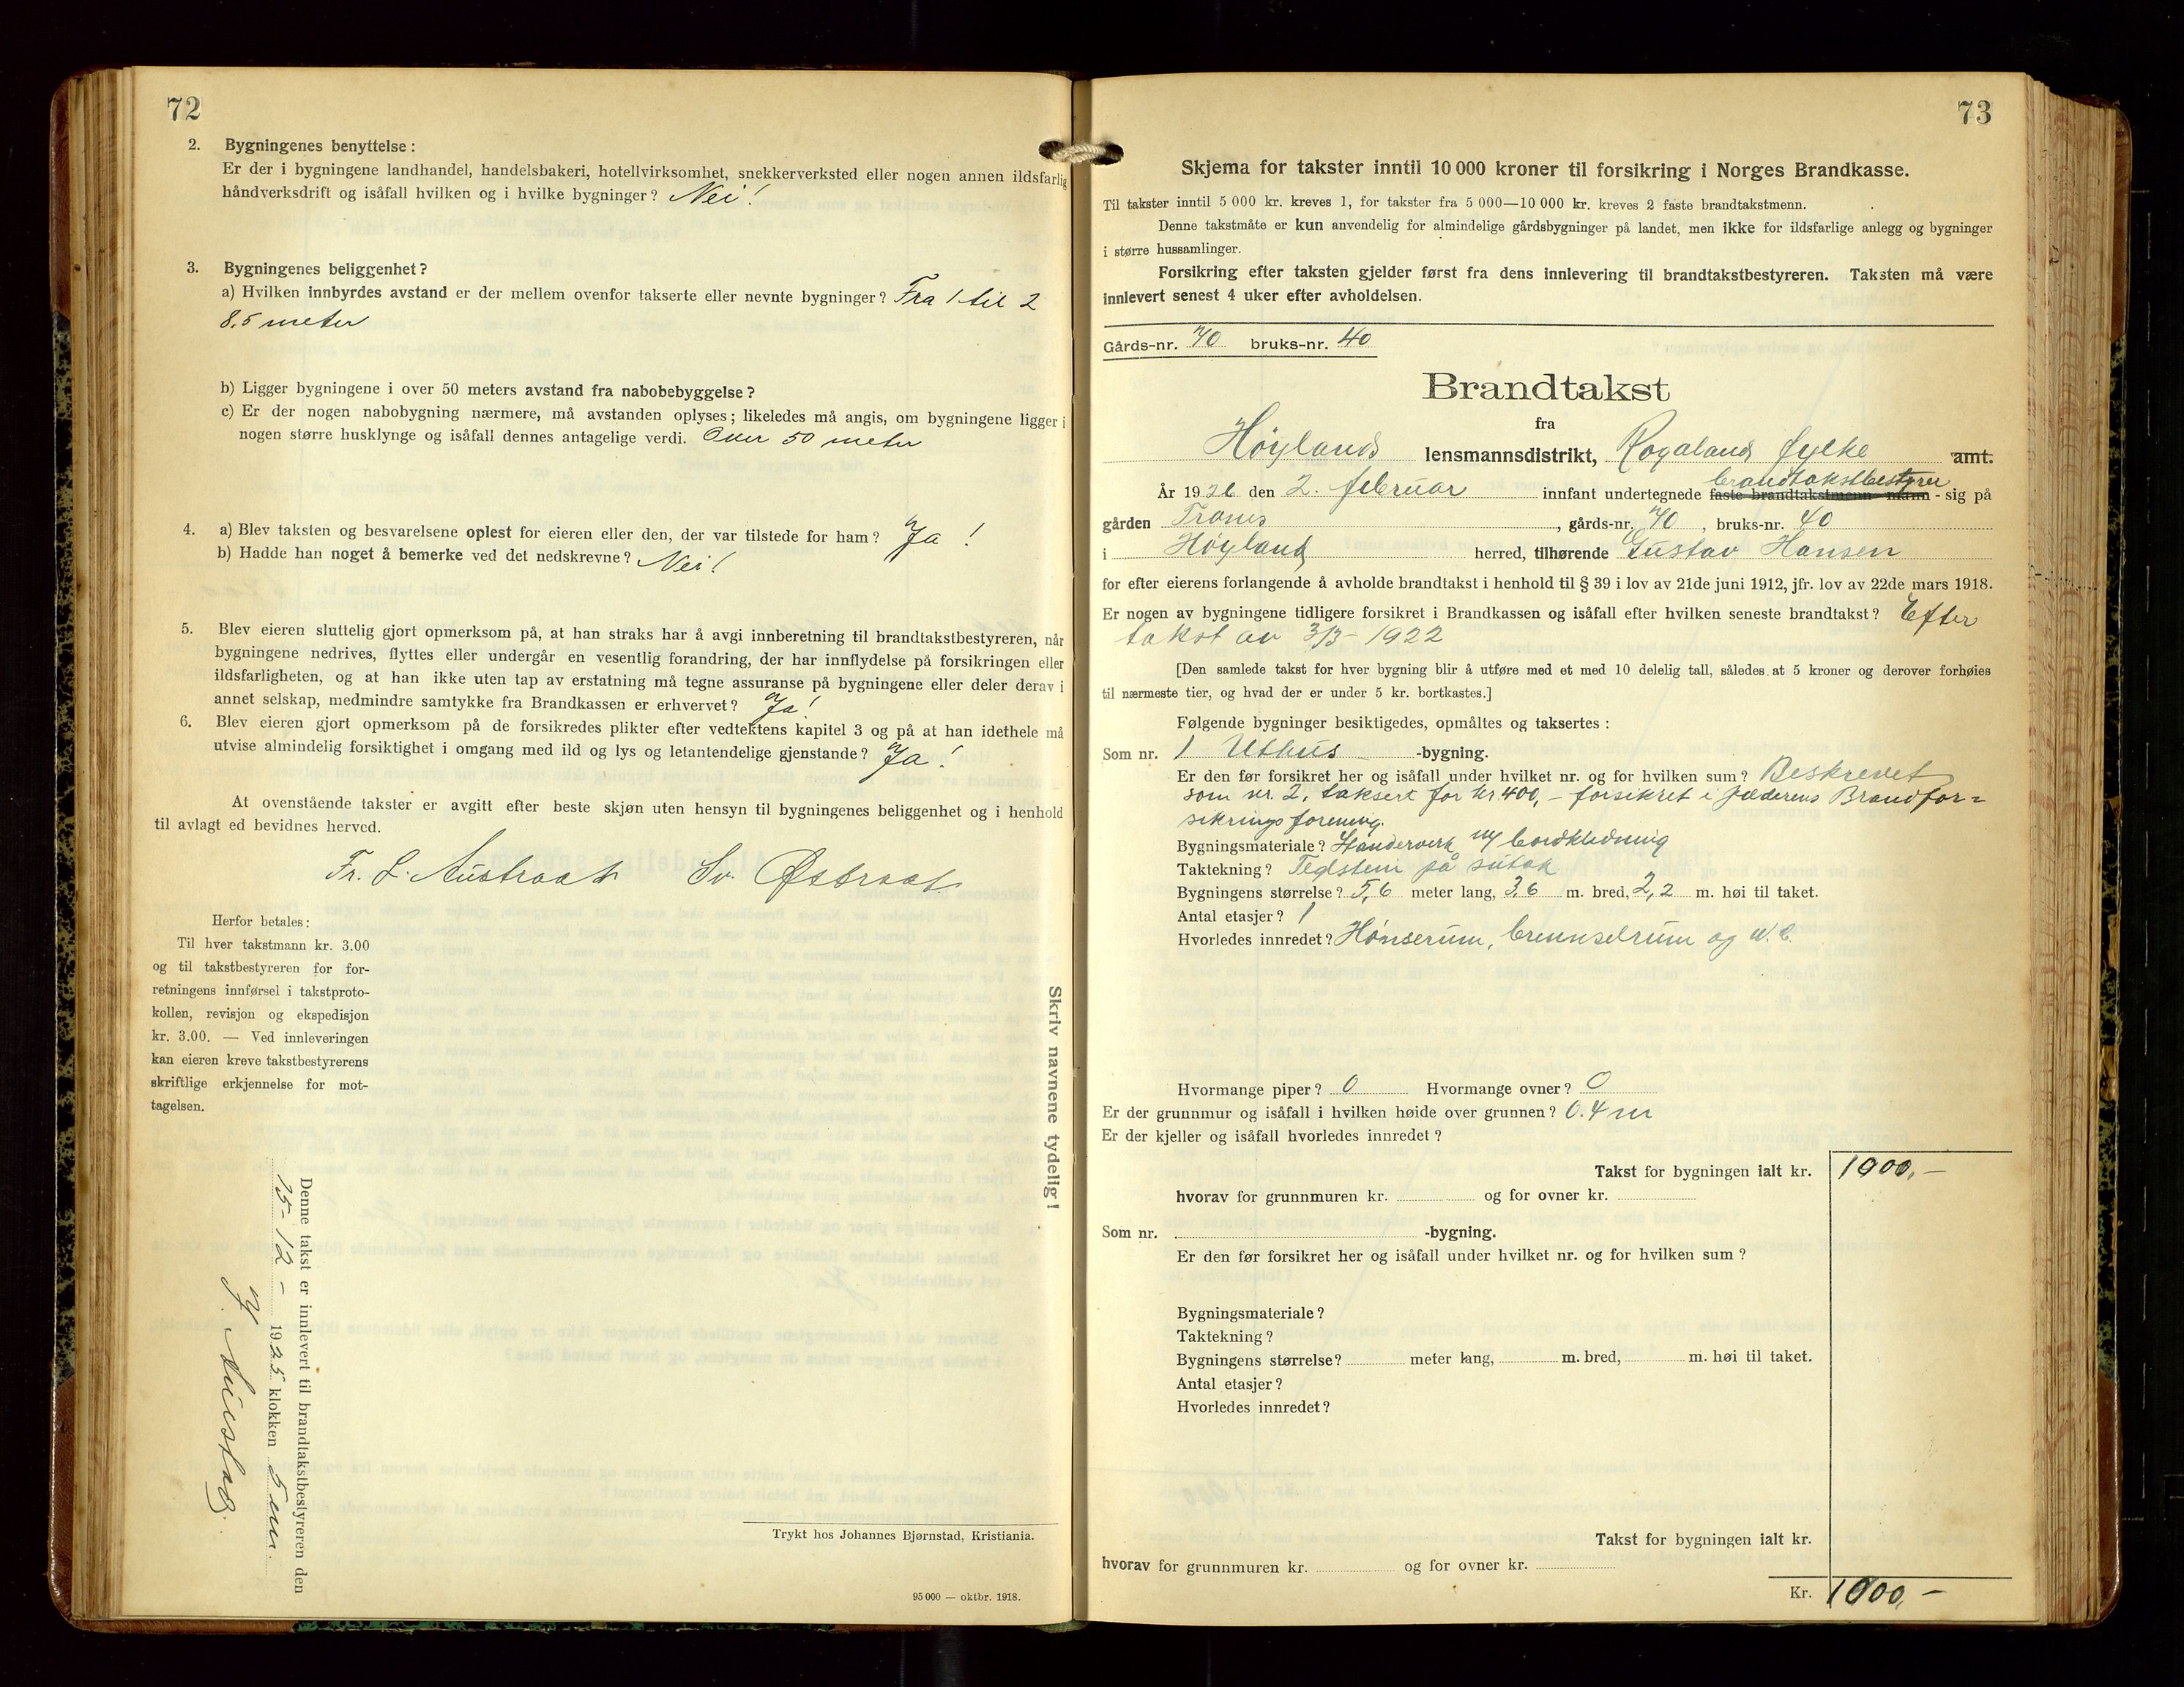 72
2. Bygningenes benyttelse :
Er der i bygningene landhandel, handelsbakeri, hotellvirksomhet, snekkerverksted eller nogen annen ildsfarlig
håndverksdrift og isåfall hvilken og i hvilke bygninger? Nei!
3. Bygningenes beliggenhet?
a) Hvilken innbyrdes avstand er der mellem ovenfor takserte eller nevnte bygninger? Fra 1 til 2
8.5 meter
b) Ligger bygningene i over 50 meters avstand fra nabobebyggelse?
c) Er der nogen nabobygning nærmere, må avstanden oplyses; likeledes må angis, om bygningene ligger i
nogen større husklynge og isåfall dennes antagelige verdi. Over 50 meter
4. a) Blev taksten og besvarelsene oplest for eieren eller den, der var tilstede for ham? Ja!
b) Hadde han noget å bemerke ved det nedskrevne? Nei!
5. Blev eieren sluttelig gjort opmerksom på, at han straks har å avgi innberetning til brandtakstbestyreren, når
bygningene nedrives, flyttes eller undergår en vesentlig forandring, der har innflydelse på forsikringen eller
ildsfarligheten, og at han ikke uten tap av erstatning må tegne assuranse på bygningene eller deler derav i
annet selskap, medmindre samtykke fra Brandkassen er erhvervet? Ja!
6. Blev eieren gjort opmerksom på de forsikredes plikter efter vedtektens kapitel 3 og på at han idethele må
utvise almindelig forsiktighet i omgang med ild og lys og letantendelige gjenstande? Ja!
At ovenstående takster er avgitt efter beste skjøn uten hensyn til bygningenes beliggenhet og i henhold
til avlagt ed bevidnes herved.
Fr. L. Austraat Sv. Østraat
Herfor betales:
Til hver takstmann kr. 3.00
og til takstbestyreren for for-
retningens innførsel i takstproto-
kollen, revisjon og ekspedisjon
kr. 3.00. — Ved innleveringen
kan eieren kreve takstbestyrerens
skriftlige erkjennelse for mot-
tagelsen.
Skriv navnene tydelig!
Denne takst er innlevert til brandtakstbestyreren den
15-12- 1925 klokken 5 em.
Trykt hos Johannes Bjørnstad, Kristiania.
95000 — oktbr. 1918.
73
Skjema for takster inntil 10 000 kroner til forsikring i Norges Brandkasse.
Til takster inntil 5 000 kr. kreves 1, for takster fra 5 000—10 000 kr. kreves 2 faste brandtakstmenn.
Denne takstmåte er kun anvendelig for almindelige gårdsbygninger på landet, men ikke for ildsfarlige anlegg og bygninger
i større hussamlinger.
Forsikring efter taksten gjelder først fra dens innlevering til brandtakstbestyreren. Taksten må være
innlevert senest 4 uker efter avholdelsen.
Gårds-nr. 40 bruks-nr. 40
Brandtakst
fra
Høylands lensmannsdistrikt, Rogaland fylke amt.
brandtakstbestyrer
År 1926 den 2. februar innfant undertegnede faste brandtakstmenn - mann - sig på
gården Trones, gårds-nr. 40, bruks-nr. 40
i Høyland herred, tilhørende Gustav Hansen
for efter eierens forlangende å avholde brandtakst i henhold til § 39 i lov av 21de juni 1912, jfr. lov av 22de mars 1918.
Er nogen av bygningene tidligere forsikret i Brandkassen og isåfall efter hvilken seneste brandtakst? Efter
takst av 3/3 - 1922
[Den samlede takst for hver bygning blir å utføre med et med 10 delelig tall, således at 5 kroner og derover forhøies
til nærmeste tier, og hvad der er under 5 kr. bortkastes.]
Følgende bygninger besiktigedes, opmåltes og taksertes :
Som nr. 1 Uthus -bygning.
Er den før forsikret her og isåfall under hvilket nr. og for hvilken sum? Beskrevet
som nr. 2, taksert for kr. 400,- forsikret i Jæderens Brandfor=
sikringsforening.
Bygningsmateriale? Standerverk m/ bordklædning
Taktekning? Teglsten på sutak
Bygningens størrelse? 5,6 meter lang, 3,6 m. bred, 2,2 m. høi til taket.
Antal etasjer? 1
Hvorledes innredet? Hønserum, brennselrum og W.C.
Hvormange piper? 0 Hvormange ovner? 0
Er der grunnmur og isåfall i hvilken høide over grunnen? 0.4 m
Er der kjeller og isåfall hvorledes innredet?
Takst for bygningen ialt kr. 1000,-
hvorav for grunnmuren kr. og for ovner kr.
Som nr. -bygning.
Er den før forsikret her og isåfall under hvilket nr. og for hvilken sum?
Bygningsmateriale?
Taktekning?
Bygningens størrelse? meter lang, m. bred, m. høi til taket.
Antal etasjer?
Hvorledes innredet?
Takst for bygningen ialt kr.
hvorav for grunnmuren kr. og for ovner kr.
Kr. 1000,-